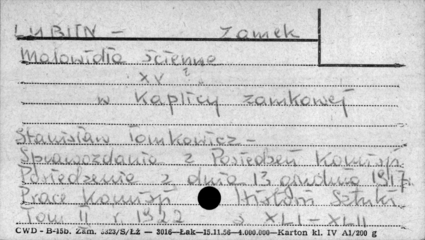 LUBLIN - Zamek
Malowidła ścienne
XV ?
w Kaplicy zamkowej
Stanisław Tomkowicz -
Sprawozdania z Posiedzeń Komisji.
Posiedzenie z dnia 13 grudnia 1917 r.
Prace Komisji Histom Sztuki
Tom II r 1922 s XLI-XLII
CWD - B-15b. Zam. 5323/S/ŁŻ — 3016—Łak—15.11.56—4.000.000—Karton kl. IV A1/200 g